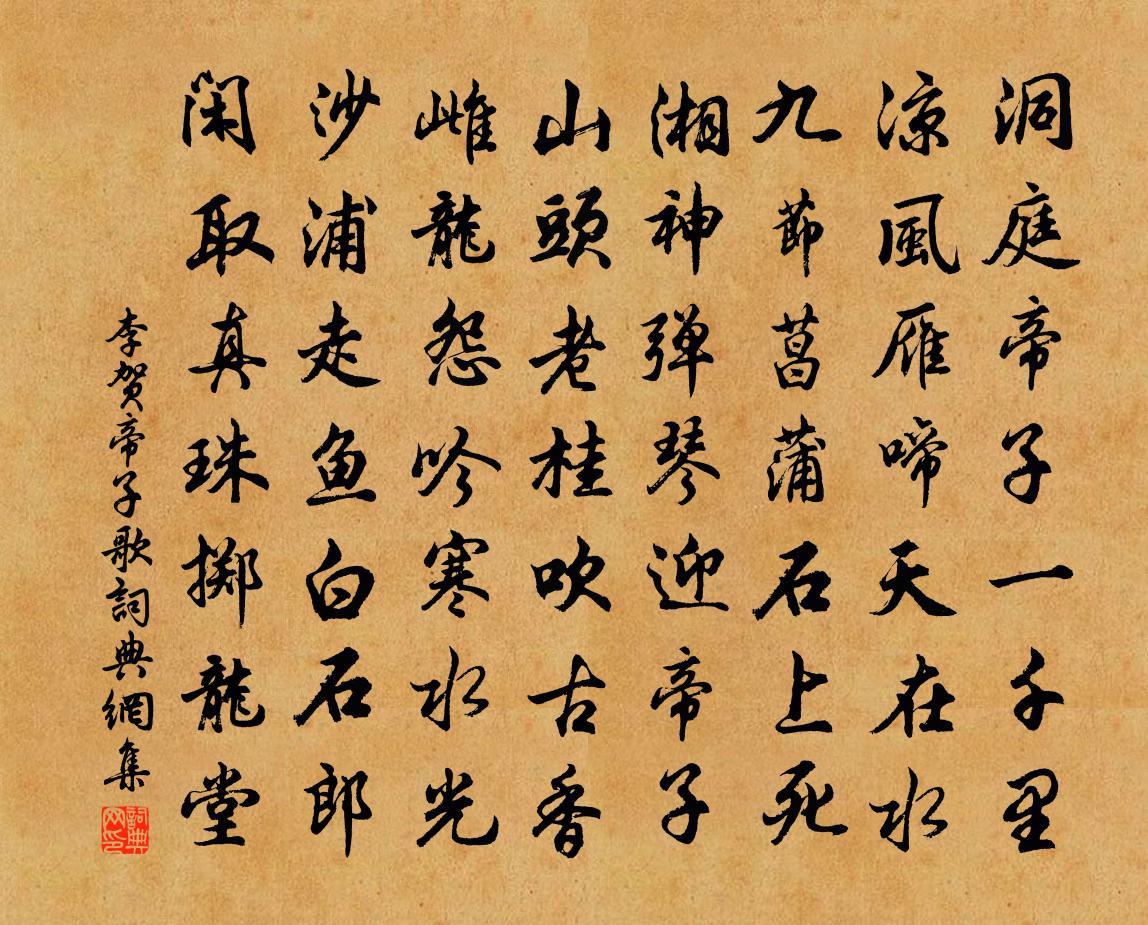 洞庭帝子一千里
凉風雁啼天在水
九節菖蒲石上死
湘神弹琴迎帝子
山頭老桂吹古香
雌龍怨吟寒水光
沙浦走鱼白石郎
闲取真珠掷龍堂
李贺帝子歌詞典網集
詞典网印